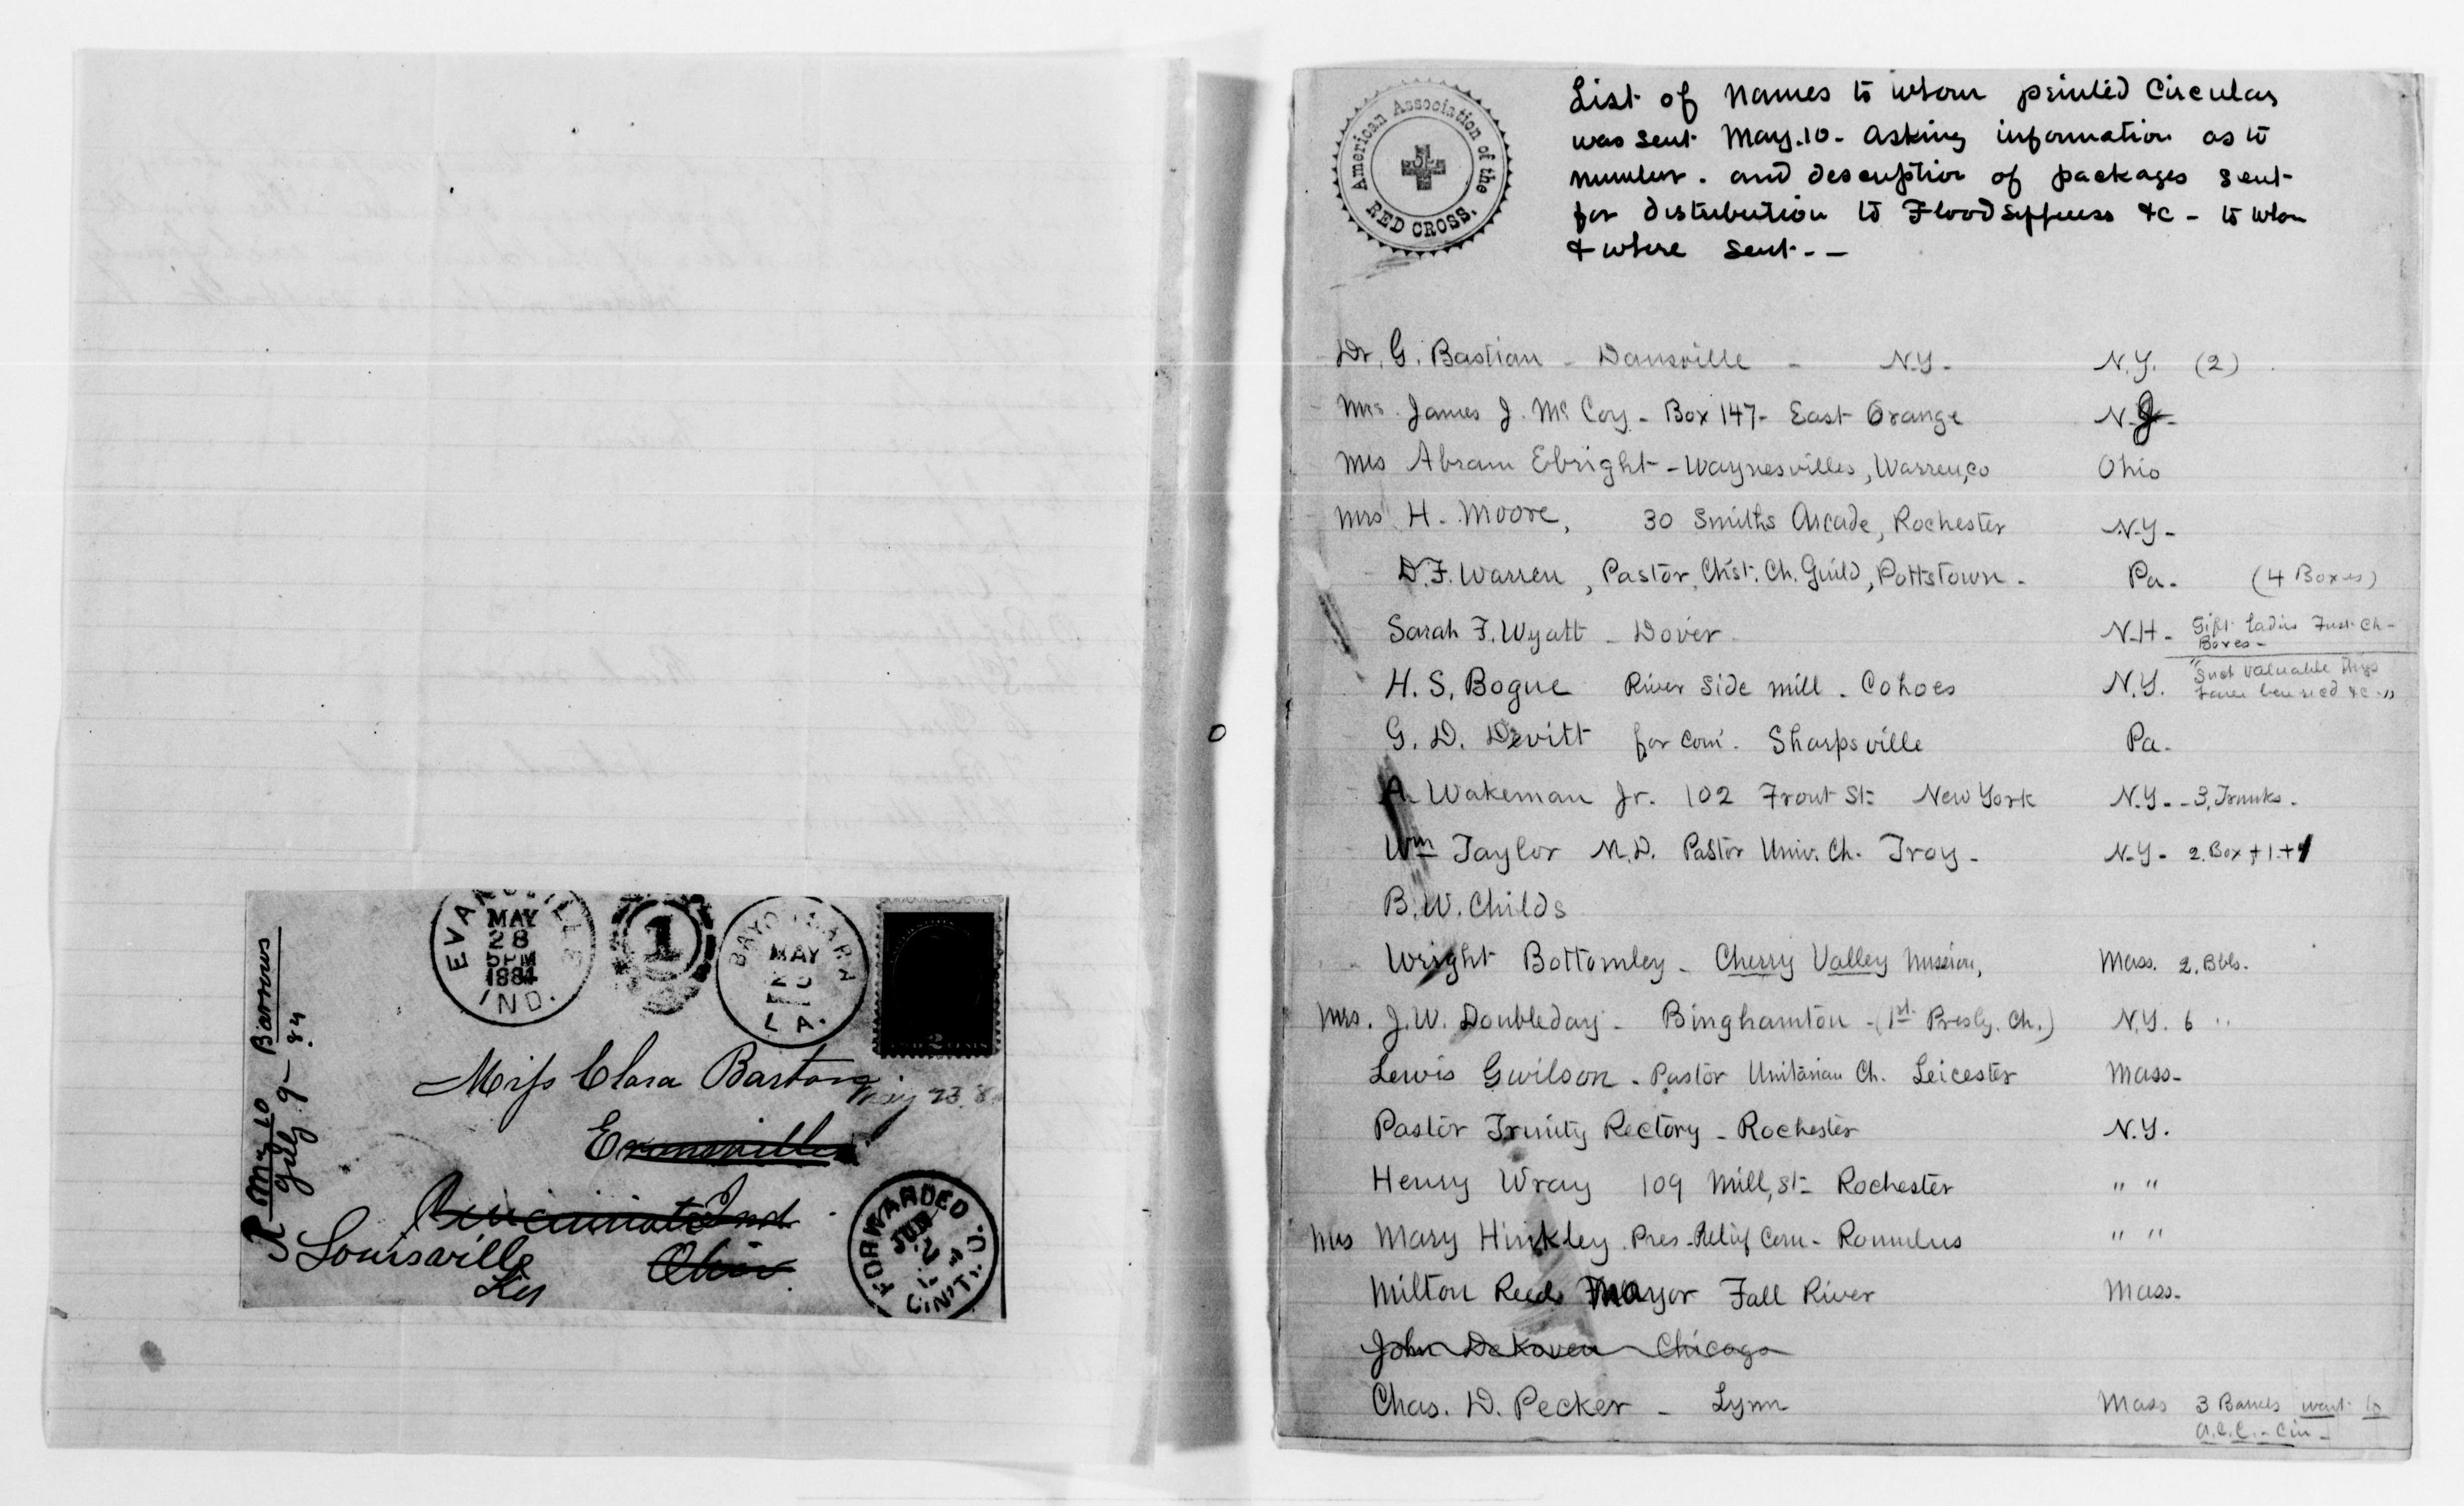 EVANSVILLE
MAY
28
5PM
1884
IND.
1
BAYOU SARA
MAY
LA.
2
Miss Clara Barton
May 23.
Evansville
Ind
Cincinnati
Ohio
Louisville
Ky
FORWARDED
JUN
2
CIN'TI. O.
R My 10 Barrows
July 9 - 84
American Association of the
RED CROSS.
List of Names to whom printed Circular
was sent May. 10 - asking information as to
number. and description of packages sent
for distribution to Flood Sufferers &c - to whom
& where sent. - -
Dr. G. Bastian - Dansville - N.Y. - N.Y. (2)
Mrs. James J. McCoy - Box 147 - East Orange N.J.
Mrs Abram Ebright - Waynesvilles, Warren, Co Ohio
Mrs H. Moore, 30 Smiths Arcade, Rochester N.Y -
D. F. Warren, Pastor, Chst. Ch. Guild, Pottstown - Pa. (4 Boxes)
Sarah F. Wyatt - Dover N.H - Gift ladies Ch -
Boxes -
H. S. Bogue River Side Mill. Cohoes N.Y. "Such valuable things
&c -"
G. D. Devitt for Com. Sharpsville Pa.
A. Wakeman Jr. 102 Front St. New York N.Y. - 3, Trunks.
Wm Taylor M.D. Pastor Univ. Ch. Troy - N.Y - 2. Box + 1. + 1
B. W. Childs
Wright Bottomley - Cherry Valley Mission, Mass. 2. Bbls.
Mrs. J. W. Doubleday - Binghamton - (1st Presby. Ch.) N.Y. 6 "
Lewis G Wilson - Pastor Unitarian Ch. Leicester Mass -
Pastor Trinity Rectory - Rochester N.Y.
Henry Wray 109 Mill, St - Rochester " "
Mrs Mary Hinkley. Pres - Relief Com - Romulus " "
Milton Reed Mayor Fall River Mass -
John DeKoven - Chicago
Chas. D. Pecker - Lynn Mass 3 Barrels went to
A.C.C. - Cin -